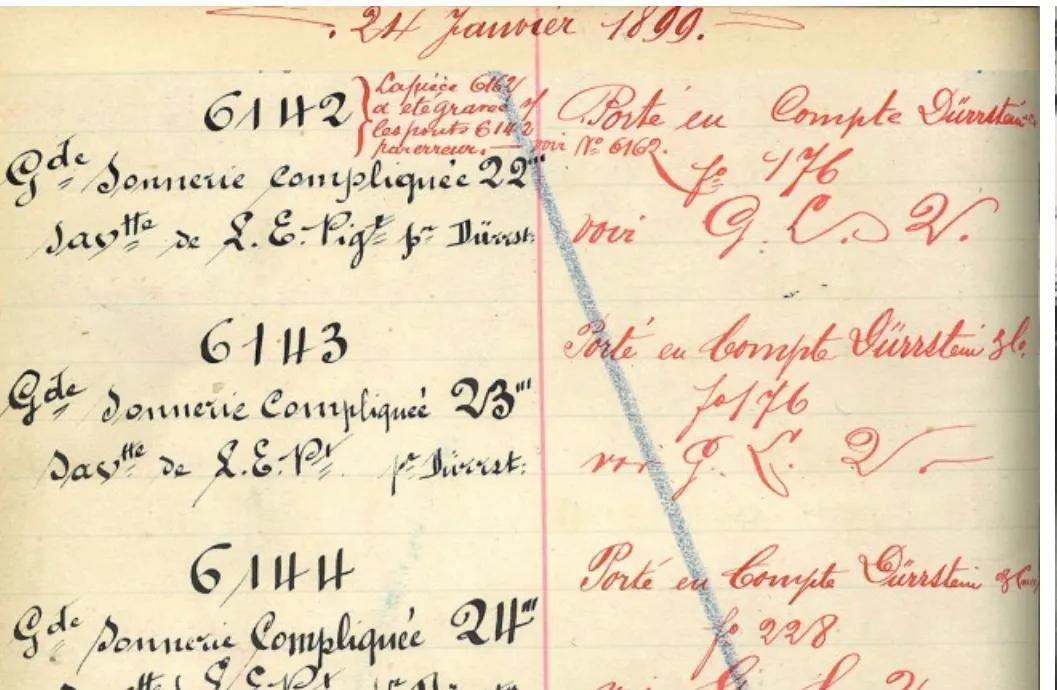 24 Janvier 1899.
6142
La pièce 6162
a été gravée s/
les ponts 6142
par erreur. — voir Nº 6162.
Gde Sonnerie Compliquée 22'''
Savtte de L. E. Pigt pr Dürrst:
Porté en Compte Dürrstein
fo 176
voir G. L. 2.
6143
Gde Sonnerie Compliquée 23'''
Savtte de L. E. Pt. pr Dürrst:
Porté en Compte Dürrstein & Co.
fo 176
voir G. L. 2
6144
Gde Sonnerie Compliquée 24'''
Porté en Compte Dürrstein & Co
fo 228